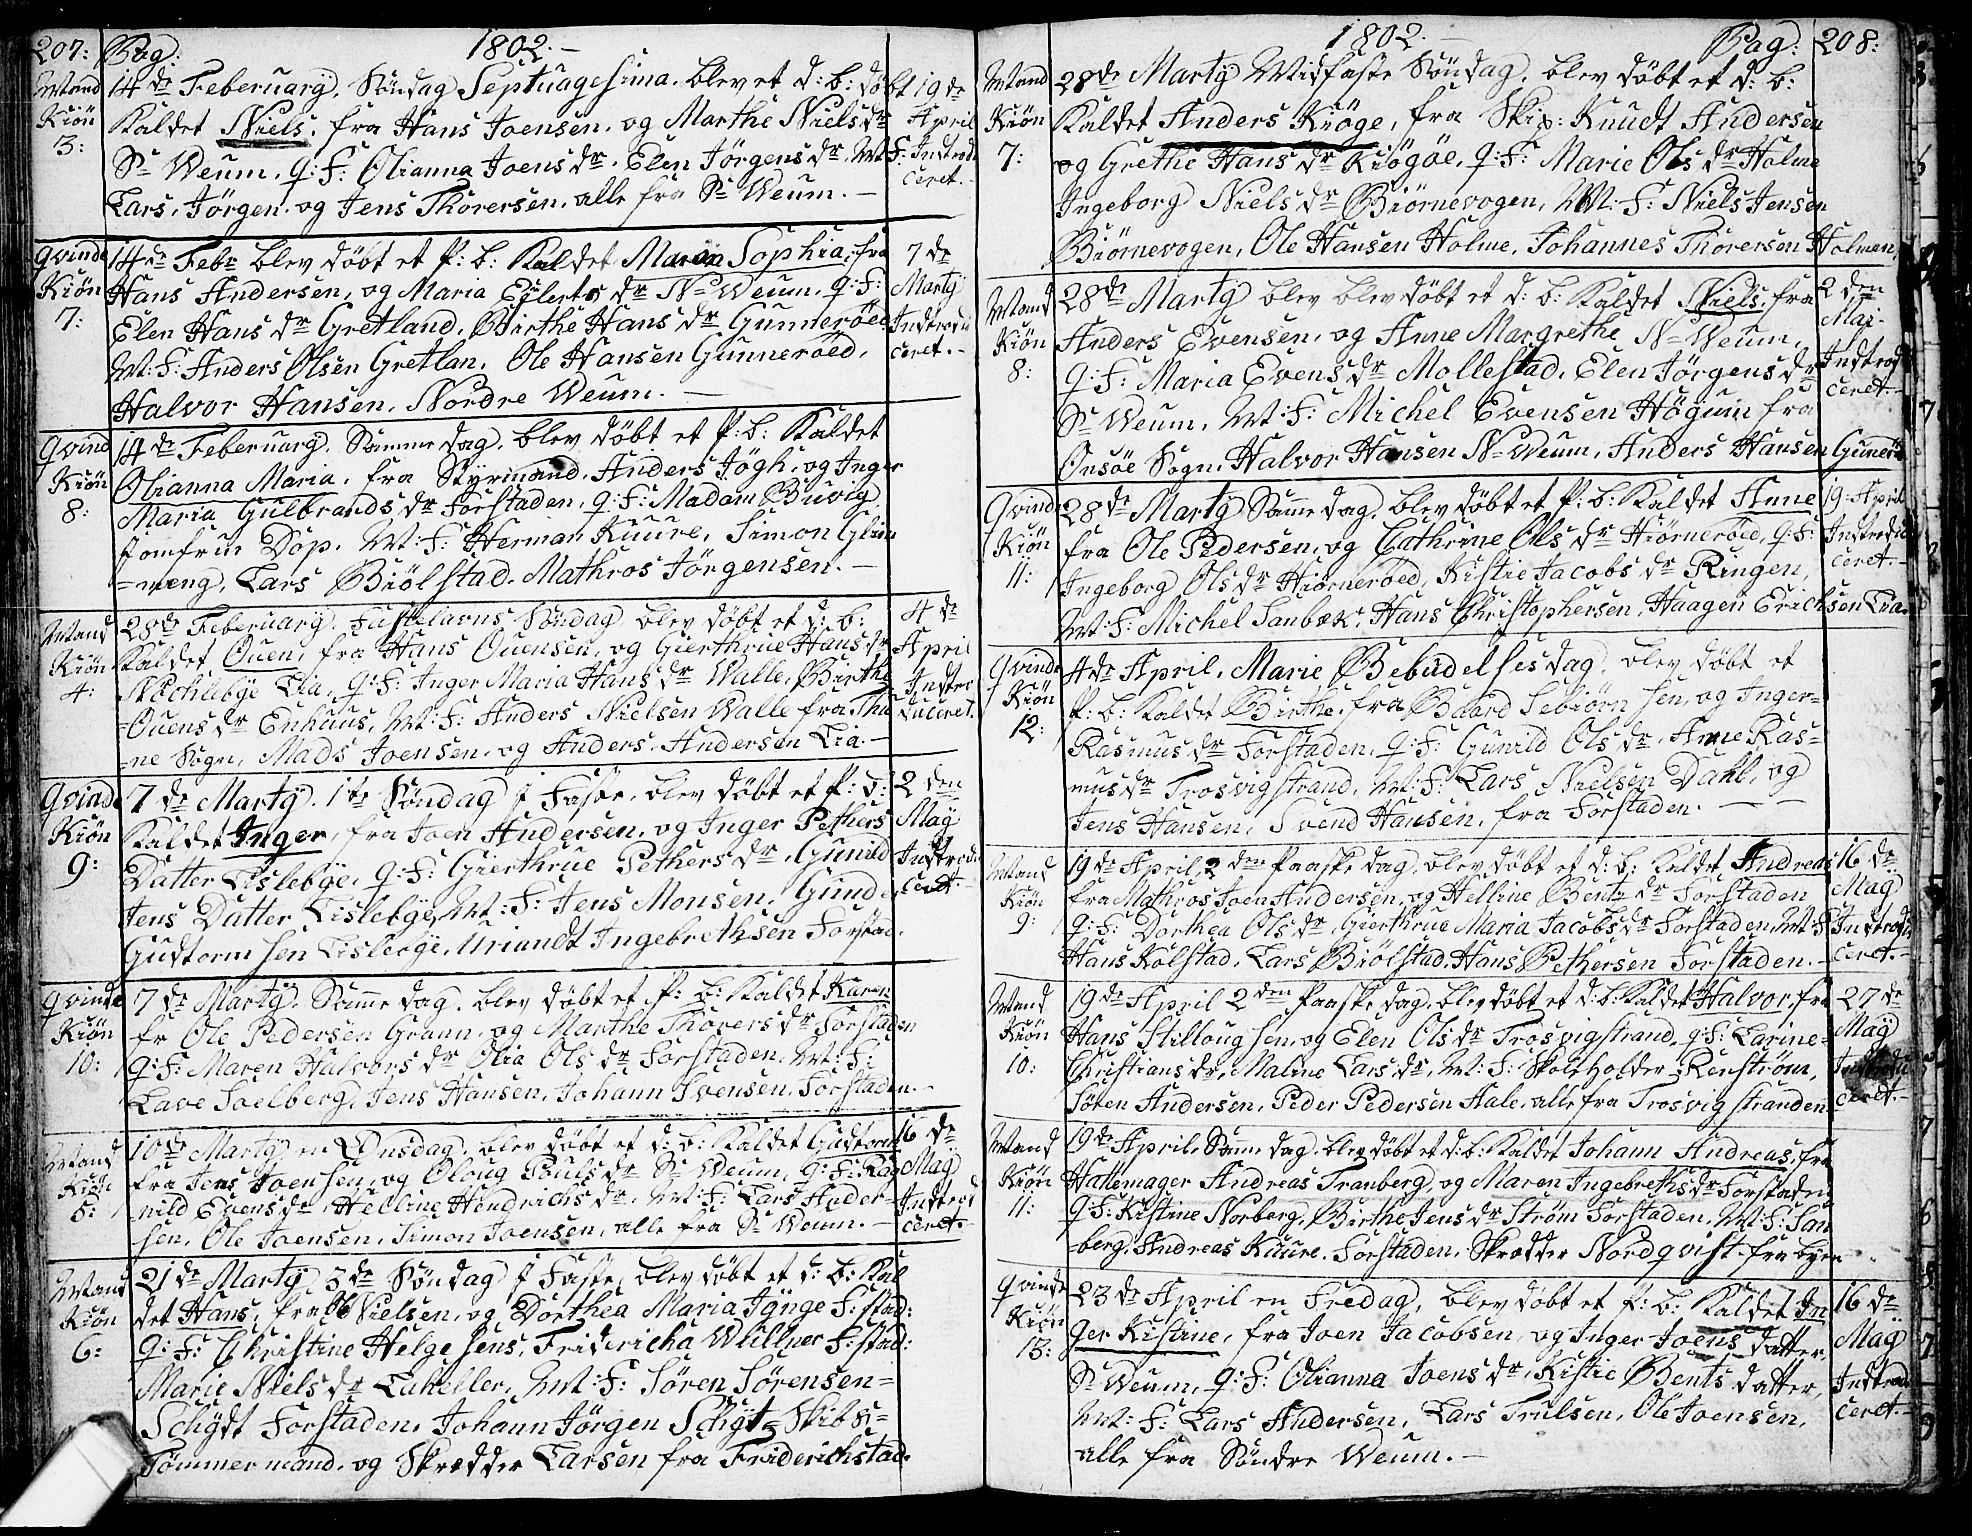 207: Pag: 1802.
Mand Kiøn 3:
14de Februarÿ, Søndag Septuagesima. blev et d: b: døbt
Kaldet Niels, fra Hans Joensen, og Marthe Nielsdr
Sr Weum, q: F: Olianna Joensdr. Elen Jörgensdr, M: F:
Lars, Jörgen, og Jens Thorersen, alle fra Sr Weum.
19de April Indtroduceret.
Qvinde Kiøn 7:
14de Febr blev døbt et P: b: Kaldet Maria Sophia, fra
Hans Andersen, og Maria Eÿlertsdr N= Weum, q: F:
Elen Hansdr Gretland, Birthe Hansdr Gunnerøed,
M: F: Anders Olsen Gretlan, Ole Hansen Gunnerøed,
Halvor Hansen, Nordre Weum.
7de Martÿ Indtroduceret.
Qvinde Kiøn 8:
14de Februarÿ, Samme dag, blev døbt et P: b: Kaldet
Olianna Maria, fra Styrmand, Anders Jögh, og Inger
Maria Gulbrandsdr Forstaden, q: F: Madam Buvig,
Jomfrue Dop. M: F: Herman Kuure, Simon Glim
=meng, Lars Biølstad. Mathros Jörgensen.
Mand Kiøn 4:
28de Februarÿ. Fastelavns Søndag blev døbt et d: b:
Kaldet Ouen, fra Hans Ouensen, og Gierthrue Hansdr
Nechlebÿe Lia, q: F: Inger Maria Hansdr Walle, Birthe
=Ouensdr Enhuus, M: F: Anders Nielsen Walle fra Thu
=ne Sogn, Mads Joensen, og Anders Andersen Lia.
4de April Indtroduceret.
Qvinde Kiøn 9:
7de Martÿ. 1te Søndag J Faste, blev døbt et P: b:
Kaldet Inger, fra Joen Andersen, og Inger Pethers
Datter Lislebÿe, q: F: Gierthrue Pethersdr, Gunild
Jens Datter Lislebÿe, M: F: Jens Monsen, Gunder
Gudtormsen Lislebÿe, Uriandt Ingebrethsen Forstad.
2den Maÿ Indtroduceret.
Qvinde Kiøn 10:
7de Martÿ, Samme dag, blev døbt et P: b: Kaldet Karen
fr Ole Pedersen Grann, og Marthe Thorersdr Forstaden
q: F: Maren Halvorsdr Olia Olsdr Forstaden, M: F:
Lave Soelberg, Jens Hansen, Johann Svensen, Forstaden.
Mand Kiøn 5:
10de Martÿ, en Onsdag, blev døbt et d: b: Kaldet Gudtorm
fra Jens Joensen, og Oloug Poulsdr Sr Weum, q: F: Rag
nild Evensdr, Helline Hendrichsdr, M: F: Lars Ander-
sen, Ole Joensen, Simon Joensen, alle fra Sr Weum.
16de Maÿ Indtroduceret.
Mand Kiøn 6:
21de Martÿ 3de Søndag J Faste, blev døbt et d: b: Kal
det Hans, fra Ob Nielsen, og Dorthea Maria Jÿnge F: stad:
q: F: Christine Helgesens, Fridericha Willner F: stad:
Marie Nielsdr Lakeller, M: F: Søren Sørensen=
Schÿdt Forstaden, Johann Jörgen Schÿt= Skibs=
Tømmermand, og Skrædder Larsen fra Friderichstad.
1802. Pag: 208:
Mand Kiøn 7:
28de Martÿ Midfaste Søndag, blev døbt et d: b:
Kaldet Anders Kiøge, fra Skip: Knudt Andersen
og Grethe Hansdr Kiøgøe, q: F: Marie Olsdr Holme
Ingeborg Nielsdr Biørnevogen, M: F: Niels Jensen
Biørnevogen, Ole Hansen Holme, Johannes Thorersen Holmen,
Mand Kiøn 8:
28de Martÿ blev blev døbt et d: b: Kaldet Niels, fra
Anders Evensen, og Anne Margrethe N= Weum,
q: F: Maria Evensdr Mollestad, Elen Jörgensdr
Sr Weum, M: F: Michel Evensen Høgum fra
Onsøe Sogn, Halvor Hansen N= Weum, Anders Hansen Guner
2den Maj. Indtroduceret.
Qvinde Kiøn 11:
28de Martÿ Samme dag, blev døbt et P: b: Kaldet Anne
fra Ole Pedersen, og Cathrine Olsdr Hiørnerøed, q: F:
Ingeborg Olsdr Hiørnerøed, Kistie Jacobsdr Ringen,
M: F: Michel Sanbæk, Hans Christophersen, Haagen Erichsen Lia.
19. April Indtroduceret.
Qvinde Kiøn 12:
4de April, Marie Bebudelsesdag, blev døbt et
P: b: Kaldet Birthe, fra Baard Sebiørnsen, og Inger=
Rasmusdr Forstaden, q: F: Gunild Olsdr, Anne Ras=
musdr Trosvigstrand, M: F: Lars Nielsen Dahl, og
Jens Hansen, Svend Hansen, fra Forstaden.
Mand Kiøn 9:
19de April, 2den Paaske dag, blev døbt et d: b: Kaldet Andreas
fra Mathros Joen Andersen, og Helline Bentzdr Forstaden
q: F: Dorthea Olsdr, Gierthrue Maria Jacobsdr Forstaden, M: F:
Hans Kolstad, Lars Biölstad, Hans Pethersen Forstaden.
16de Maÿ Indtroduceret.
Mand Kiøn 10:
19de April 2den Paaske dag, blev døbt et d: b: Kaldet Halvor, fra
Hans Stillougsen, og Elen Olsdr Trosvigstrand, q: F: Larine=
Christiansdr, Maline Larsdr, M: F: Skoleholder Renström,
Søren Andersen, Peder Pedersen Aale, alle fra Trosvigstranden.
27de Maÿ Indtroduceret.
Mand Kiøn 11:
19de April, Samme dag, blev døbt et d: b: Kaldet Johann Andreas, fra
Hattemager Andreas Tranberg, og Maren Ingebrethsdr Forstaden
q: F: Kistine Norberg, Birthe Jensdr Ström Forstaden, M: F: San
=berg, Andreas Kuure, Forstaden, Skrædder Nordqvist fra byen
Qvinde Kiøn 13:
23de April en Fredag, blev døbt et P: b: Kaldet In
ger Kistine, fra Joen Jacobsen, og Inger Joens datter,
Sr Weum, q: F: Olianna Joensdr, Kistie Bents datter,
M: F: Lars Andersen, Lars Trulsen, Ole Joensen,
alle fra Søndre Weum.
16de Maÿ Indtroduceret.